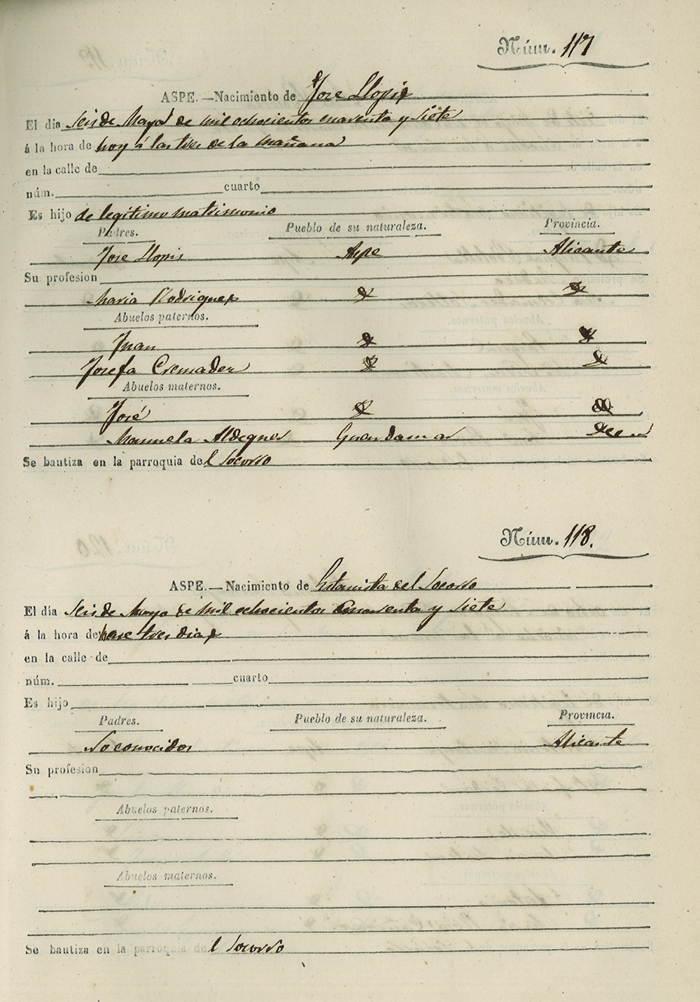 Núm. 117
ASPE.—Nacimiento de Jose Llopis
El día seis de Mayo de mil ochocientos cuarenta y siete
á la hora de hoy á las tres de la mañana
en la calle de
núm. cuarto
Es hijo de legitimo matrimonio
Padres. Pueblo de su naturaleza. Provincia.
Jose Llopis Aspe Alicante
Su profesion
Maria Rodriguez
Abuelos paternos.
Juan
Josefa Cremades
Abuelos maternos.
José
Manuela Aldeguer Guardamar
Se bautiza en la parroquia del Socorro
Núm. 118.
ASPE.—Nacimiento de del Socorro
El día seis de Mayo de mil ochocientos cuarenta y siete
á la hora de hace tres dias
en la calle de
núm. cuarto
Es hijo
Padres. Pueblo de su naturaleza. Provincia.
No conocidos Alicante
Su profesion
Abuelos paternos.
Abuelos maternos.
Se bautiza en la parroquia del Socorro